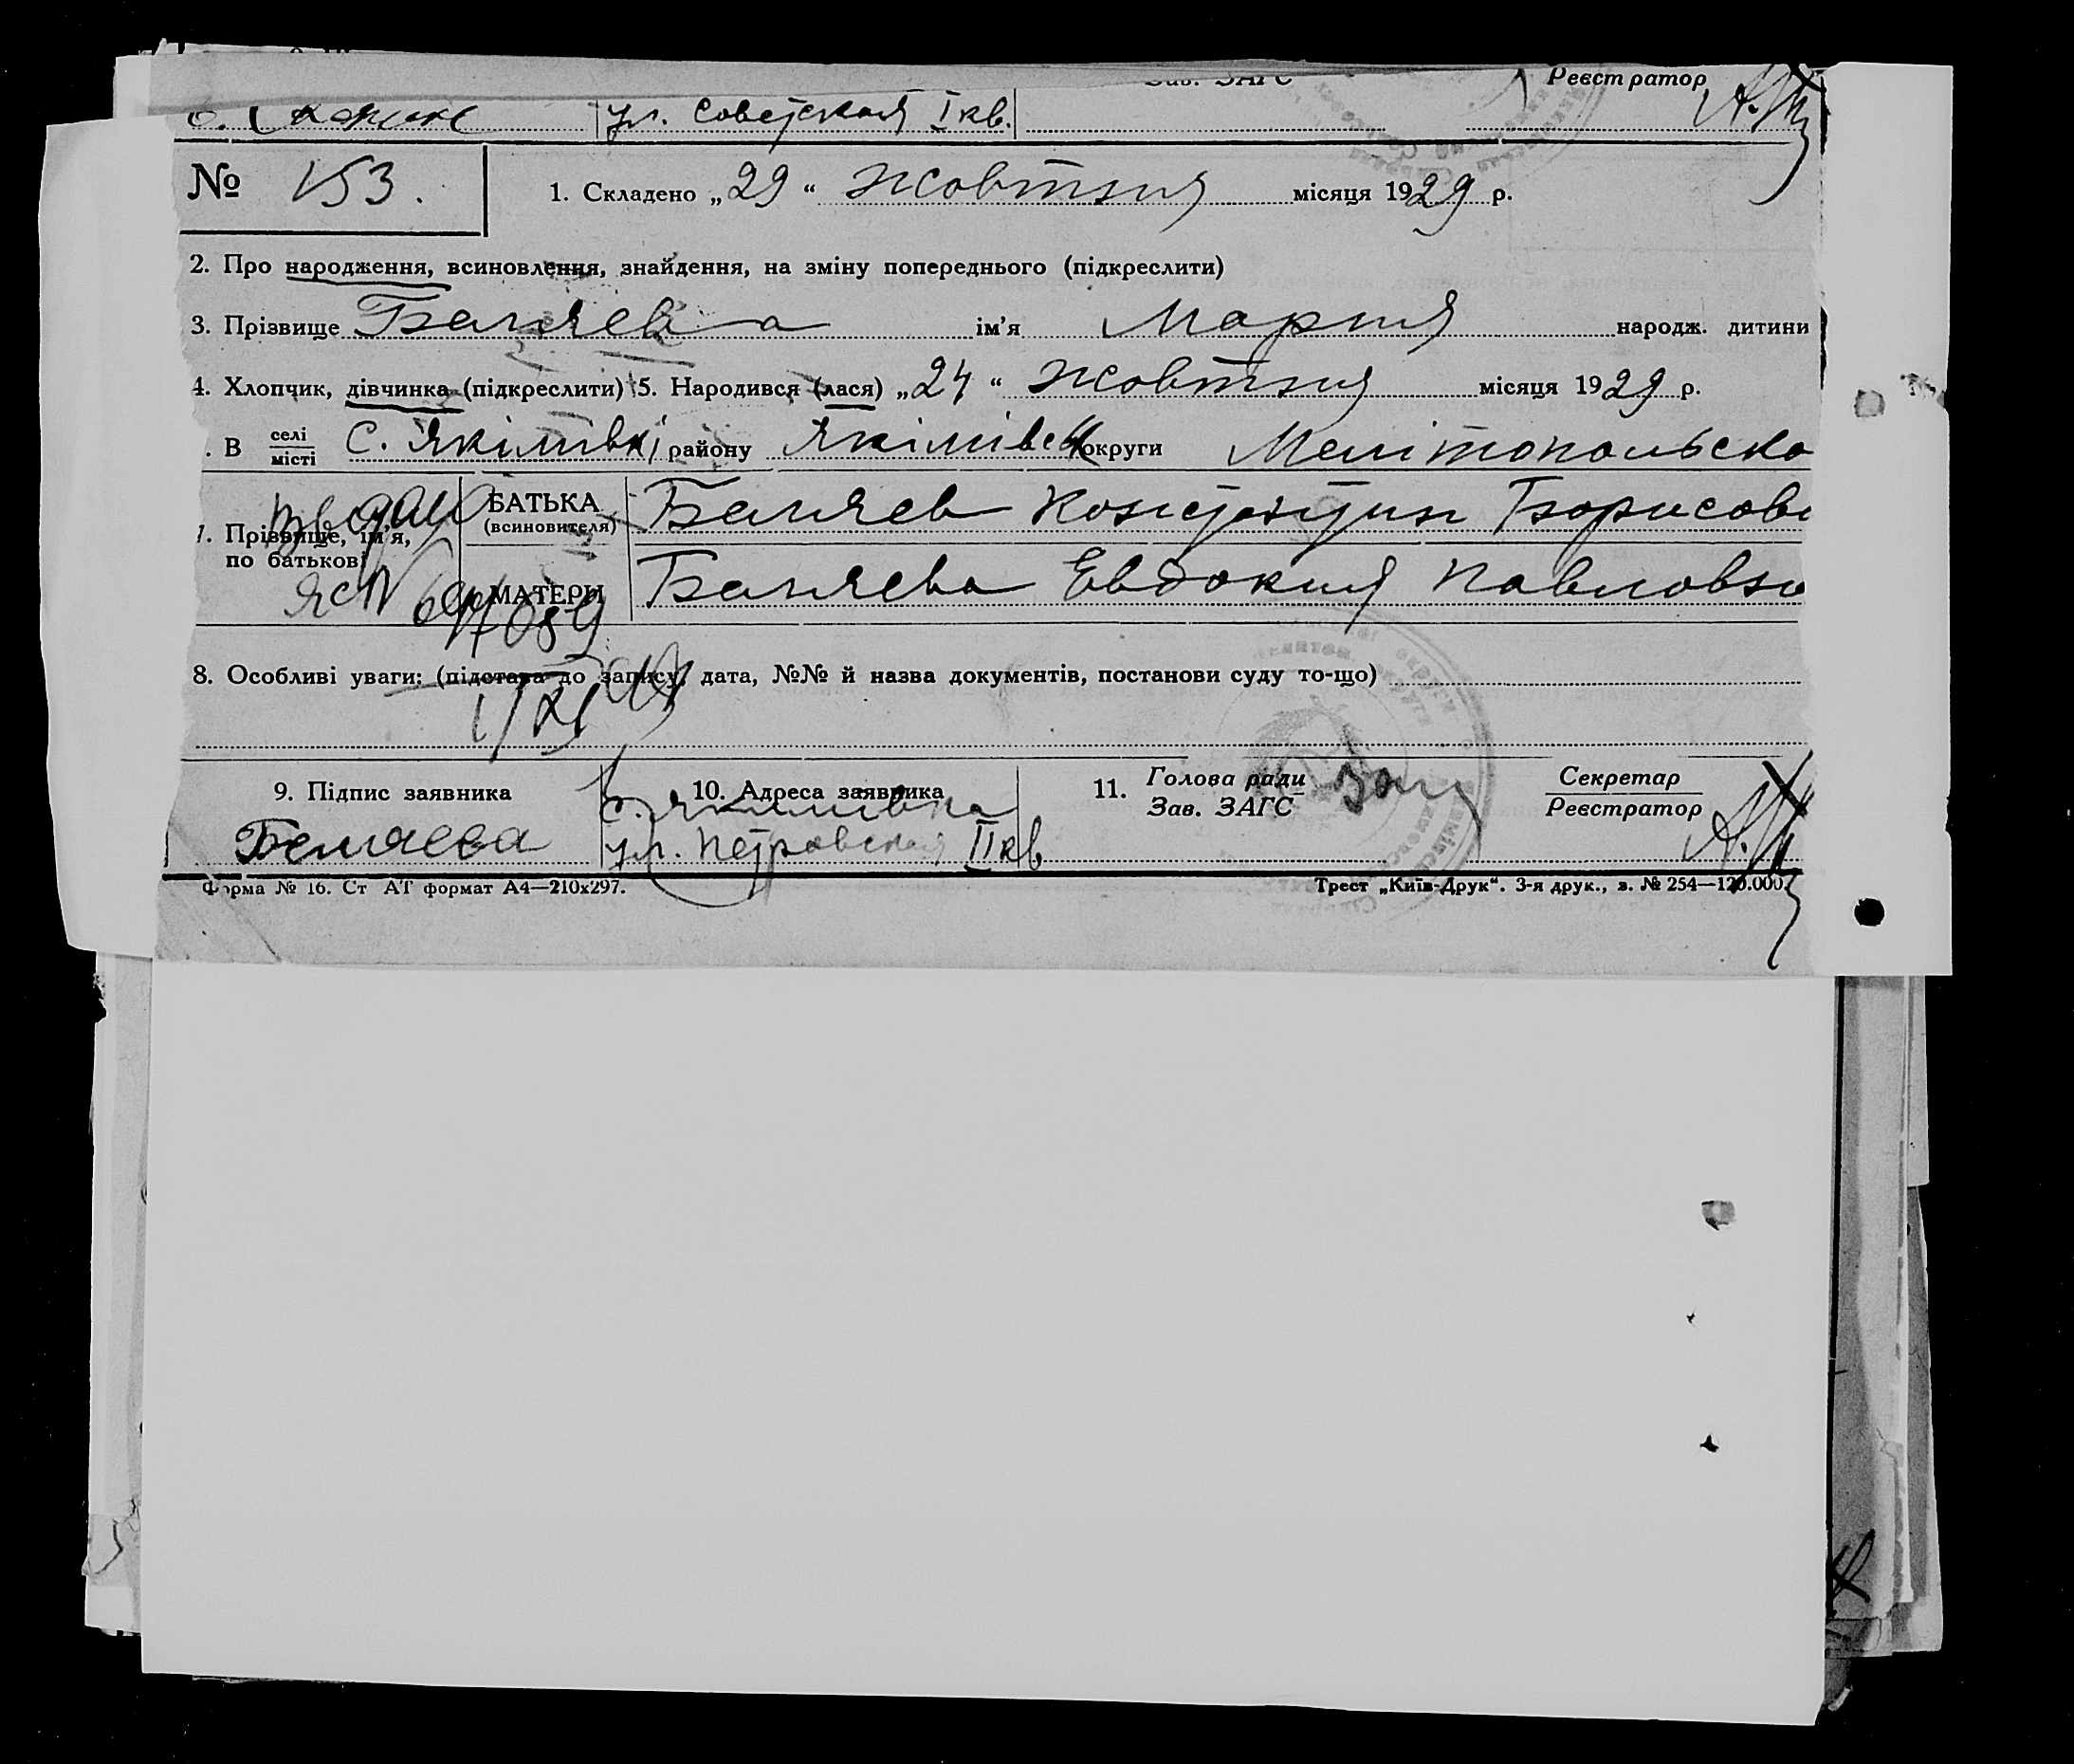 Зав. ЗАГС Реєстратор
ул. Советская I кв.
№ 153. 1. Складено „29“ жовтня місяця 1929 р.
2. Про народження, всиновлення, знайдення, на зміну попереднього (підкреслити)
3. Прізвище Беляева ім'я Мария народж. дитини
4. Хлопчик, дівчинка (підкреслити) 5. Народився (лася) „24“ жовтня місяця 1929 р.
. В селі місті с. Якімівкі району Якімівськ округи Мелітопольско
7. Прізвище, ім'я, по батькові
БАТЬКА (всиновителя) Беляев Констянтин Борисов
МАТЕРИ Беляева Евдокия Павловн
8. Особливі уваги: (підстава до запису, дата, №№ й назва документів, постанови суду то-що)
9. Підпис заявника 10. Адреса заявника 11. Голова ради Зав. ЗАГС Секретар Реєстратор
Беляева с. Якимивка
ул. Петровская II кв
Форма № 16. Ст АТ формат А4—210х297. Трест „Київ-Друк“. 3-я друк., з. № 254—120.000.